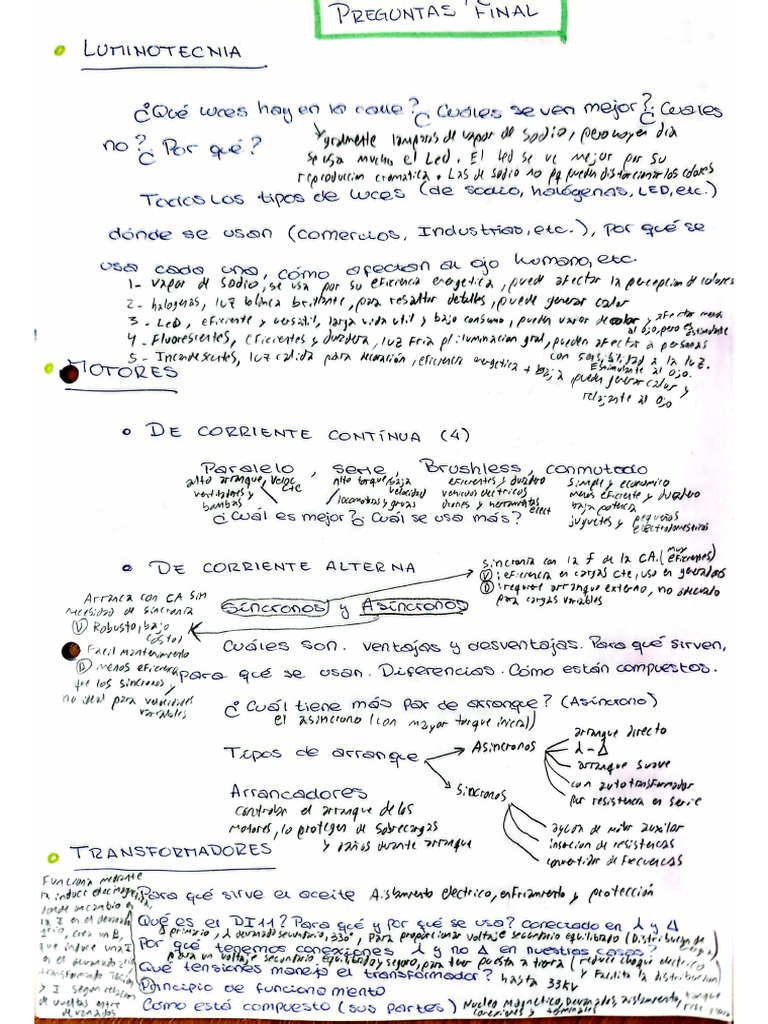 PREGUNTAS FINAL
LUMINOTECNIA
¿Qué luces hay en la calle? ¿Cuáles se ven mejor? ¿Cuáles
no? ¿Por qué?
gralmente lamparas de vapor de sodio, pero hoy en dia
se usa mucho el Led. El led se ve mejor por su
reproduccion cromatica. Las de sodio no pq pueden distorcionar los colores
Todos los tipos de luces (de sodio, halógenas, LED, etc.)
dónde se usan (comercios, Industrias, etc.), por qué se
usa cada una, cómo afectan al ojo humano, etc.
1- Vapor de sodio, se usa por su eficiencia energetica, puede afectar la percepcion de colores
2- halogenas, luz blanca brillante, para resaltar detalles, puede generar calor
3- Led, eficiente y versatil, larga vida util y bajo consumo, pueden variar de color y afectar menos
al ojo, pero es estimulante
4- Fluorescentes, Eficientes y duradera, luz fria p/ iluminacion gral, pueden afectar a personas
con sensibilidad a la luz.
5- Incandescentes, luz calida para decoración, eficiencia energetica + baja pueden generar calor y
Estimulante al ojo.
relajante al ojo
MOTORES
DE CORRIENTE CONTÍNUA (4)
Paralelo, serie, Brushless, conmutado
alto arranque, veloc cte
ventiladores y
bombas
Alto torque/baja
velocidad
locomotoras y gruas
eficientes y duradero
vehiculos electricos
drones y herramientas elect
simple y economico
menos eficiente y duradero
baja potencia
juguetes y pequeños
electrodomesticos
¿Cuál es mejor? ¿Cuál se usa más?
DE CORRIENTE ALTERNA
sincronia con la f de la CA. (muy eficientes)
V: eficiencia en cargas cte, uso en generadores
D: requiere arranque externo, no adecuado
para cargas variables
Arranca con CA sin
necesidad de sincronia
V Robusto, bajo
costo
Facil mantenimiento
D menos eficiencia
que los sincronos y
no ideal para velocidades
variables
Síncronos y Asíncronos
Cuáles son. ventajas y desventajas. Para qué sirven,
para qué se usan. Diferencias. Cómo están compuestos.
¿Cuál tiene más par de arranque? (Asíncrono)
el asincrono (con mayor torque inicial)
Tipos de arranque
Asincronos
arranque directo
λ-Δ
arranque suave
con autotransformador
por resistencia en serie
Sincronos
ayuda de motor auxiliar
insercion de resistencias
convertidor de frecuencias
Arrancadores
controlar el arranque de los
motores, lo protegen de sobrecargas
y daños durante arranque
TRANSFORMADORES
Funciona mediante
la induc electromag
donde un cambio en
la I en el devanado
1rio, crea un B,
que induce una I
en el devanado 2rio
transformando Tension
y I segun relacion
de vueltas entre
devanados
Para qué sirve el aceite Aislamiento electrico, enfriamiento y protección
Qué es el DY11? Para qué y por qué se usa? conectado en λ y Δ
primario, λ devanado secundario, 330°, Para proporcionar voltaje secundario equilibrado (Distribucion de
Por qué tenemos conexiones λ y no Δ en nuestras casas?
para un voltaje secundario, Equilibrado, seguro, para tener puesta a tierra (reduce choque electrico
y Facilita la distribucion)
Qué tensiones maneja el transformador? hasta 33kV
Principio de funcionamiento
Cómo está compuesto (sus partes) Nucleo Magnetico, Devanados, aislamiento, tanque
conexiones y terminales